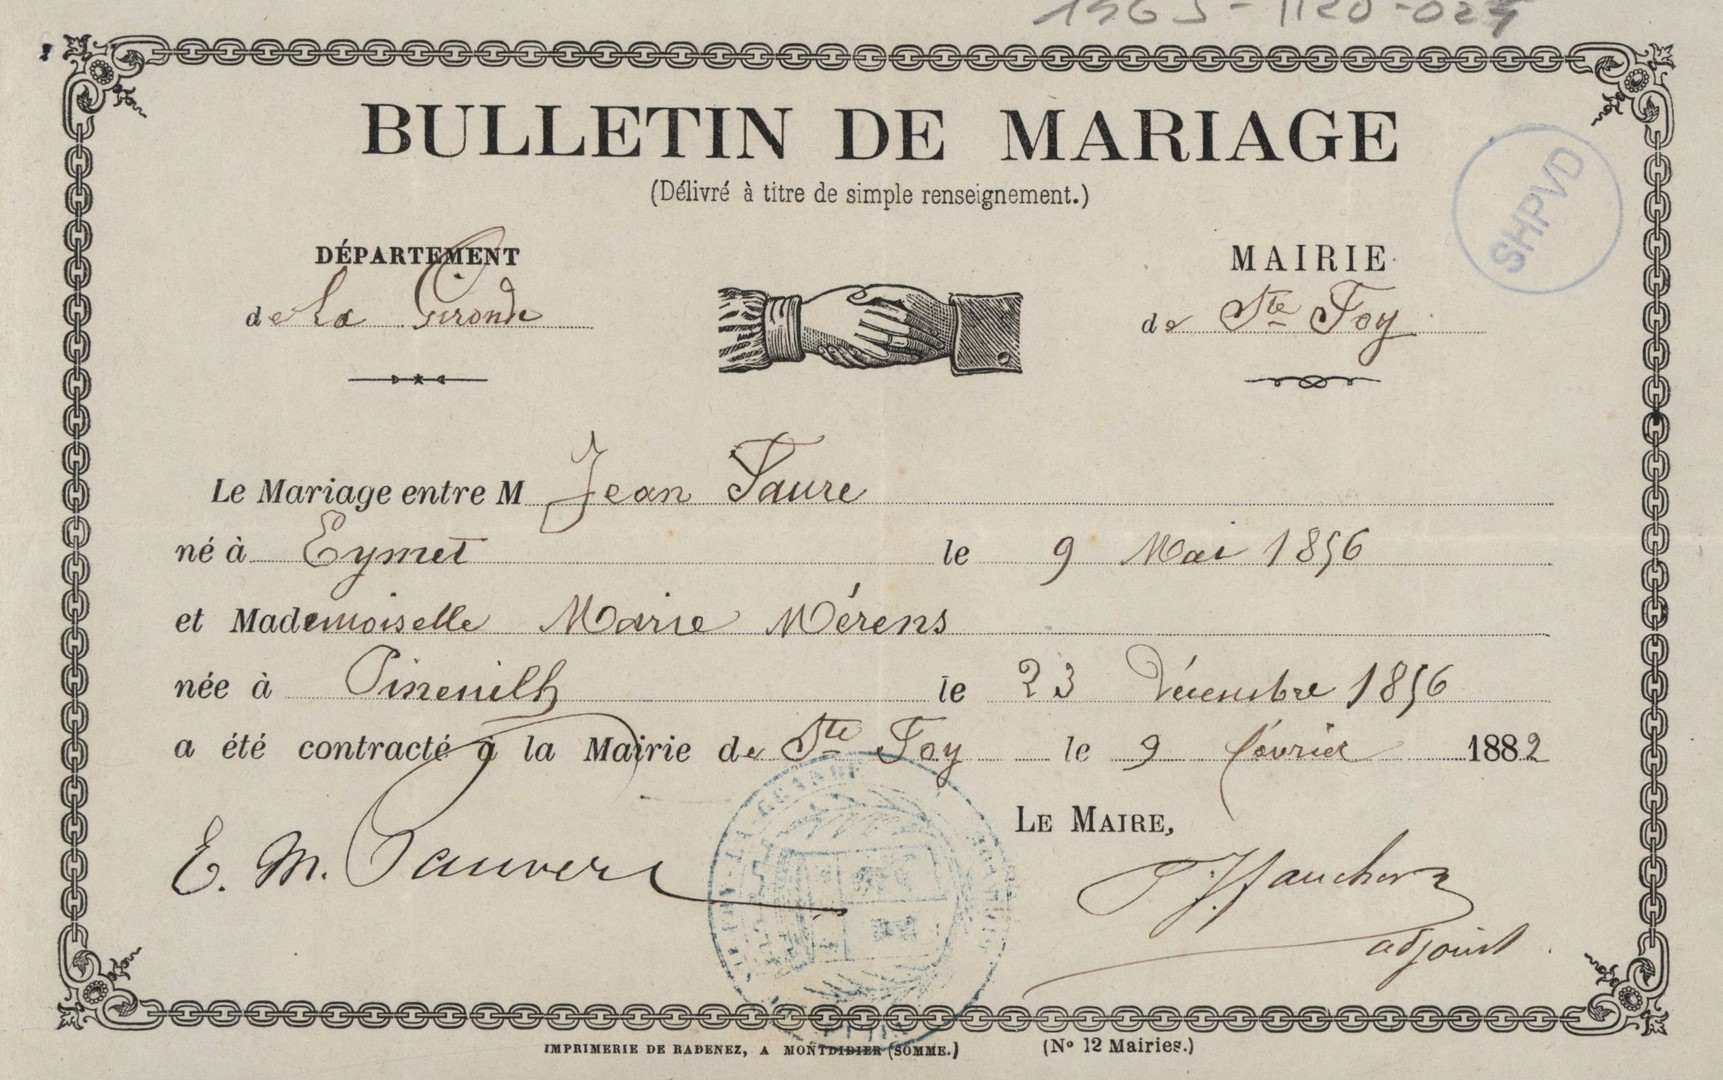 1963-1120-024
BULLETIN DE MARIAGE
(Délivré à titre de simple renseignement.)
SHPVD
DÉPARTEMENT
de La Gironde
MAIRIE
de Ste Foy
Le Mariage entre M Jean Faure
né à Eymet le 9 Mai 1856
et Mademoiselle Marie Mérens
née à Pineuilh le 23 Décembre 1856
a été contracté à la Mairie de Ste Foy le 9 février 1882
LE MAIRE,
E. M.
adjoint
IMPRIMERIE DE RADENEZ, A MONTDIDIER (SOMME.) (No 12 Mairies.)